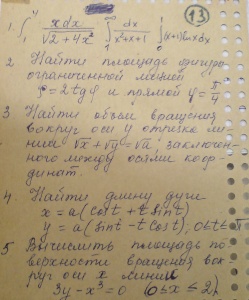 13
1 ∫₁⁴ xdx/√(2+4x²) ∫₁^∞ dx/(x²+x+1) ∫ (x+1)ln x dx
2 Найти площадь фигуры
ограниченной линией
ρ=2tgφ и прямой φ=π/4
3 Найти объем вращения
вокруг оси y отрезка ли-
нии √x+√y=√a, заключен-
ного между осями коор-
динат.
4 Найти длину дуги
x = a(cost+t sint)
y = a(sint-t cost), 0≤t≤
5 Вычислить площадь по-
верхности вращения вок-
руг оси x линии
3y-x³=0 (0≤x≤2)